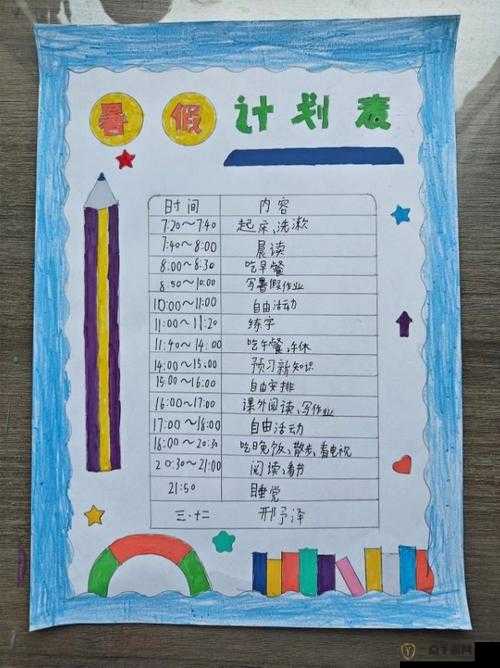 暑假计划表
时间 内容
7:20～7:40 起床、洗漱
7:40～8:00 晨读
8:00～8:30 吃早餐
8:50～10:00 写暑假作业
10:00～11:00 自由活动
11:00～11:20 练字
11:40～14:00 吃午餐、午休
14:00～15:00 预习新知识
15:00～16:00 自由安排
16:00～17:00 课外阅读、写作业
17:00～18:00 自由活动
18:00～20:30 吃晚饭、散步、看电视
20:30～21:00 阅读、看书
21:50 睡觉
三·十二 邢予泽